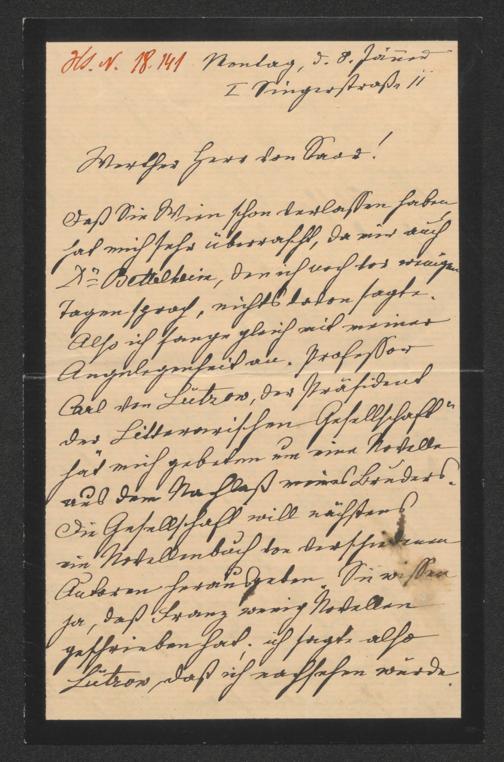 H.I.N. 18.141 Montag, d. 8. Jänner
I Singerstraße 11
Werther Herr von Saar!
Daß Sie Wien schon verlassen haben,
hat mich sehr überrascht, da mir auch
Dr. Bettelheim, den ich noch vor wenigen
Tagen sprach, nichts davon sagte.
Also ich fange gleich mit meiner
Angelegenheit an. Professor
Carl von Lützow, der Präsident
der Litterarischen Gesellschaft
hat mich gebeten um eine Novelle
aus dem Nachlaß meines Bruders.
Die Gesellschaft will nächstens
ein Novellenbuch von verschiedenen
Autoren herausgeben. Sie wissen
ja, daß Franz wenig Novellen
geschrieben hat. ich sagte also
Lützow, daß ich nachsehen würde.